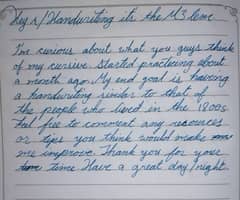 Hey r/Handwriting its the M3 leme
I'm curious about what you guys think
of my cursive. Started practicing about
a month ago. My end goal is having
a handwriting similar to that of
the people who lived in the 1800s.
Feel free to comment any resources
or tips you think would make
me improve. Thank you for your
time Have a great day/night.